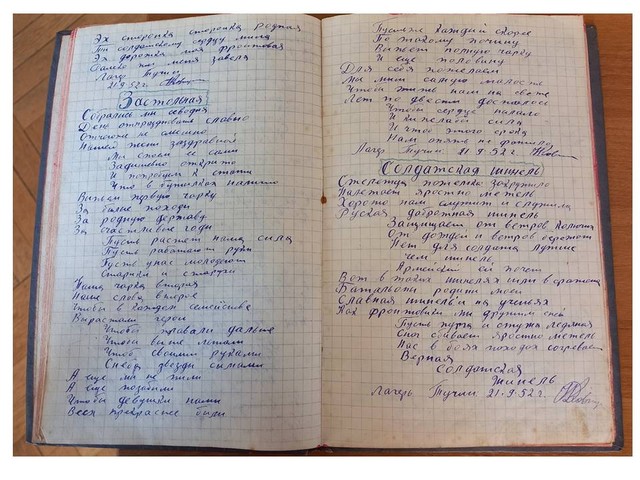 Эх сторонка сторонка родная
Ты солдатскому сердцу мила
Эх дорожка моя фронтовая
Далеко ты меня завела
Лагерь Тучин
21.9.52 г.
Застельная
Собрались мы сегодня
День отпраздновать славно
Отчего не
Нашей песни заздравной
Мы споем её сами
Задушевно открыто
И потребуем к стати
Что в бутылках налито
Выпьем первую чарку
За былые походы
За родную державу
За счастливые годы
Пусть растет наша сила
Пусть работают руки
Пусть у нас молодеют
Старики и старухи
Наша чарка вторая
Наше слово второе
Чтобы в каждом семействе
Вырастали герои
Чтобы плавали дальше
Чтобы выше летали
Чтоб своими руками
Звезды
А еще мы не пили
А еще позабыли
Чтобы девушки наши
Всех прекраснее были
Пусть же каждый скорее
По такому почину
Выпьет полную чарку
И еще половину
Для себя пожелаем
Мы ли самую малость
Чтобы жить нам на свете
Лет по двести досталось
Чтобы сердце пылало
И кипела бы сила
И чтоб этого срока
Нам опять не хватило
Лагерь Тучин 21.9.52 г.
Солдатская шинель
Степь позёмка закружила
Налетает яростно метель
Хорошо нам служит и служила
Руская добротная шинель
Защищает от ветров колючих
От дождей и ветров
Нет для солдата лучше
Чем шинель
Армейский ей почет
Вот в таких шинелях шли в сраженья
Батальоны родины моей
Славная шинель и на ученьях
Как фронтовики мы дружим с ней
Пусть пурга и стужа ледяная
Снег сбивает яростно метель
Нас в боях походах согревает
Верная
солдатская
шинель
Лагерь Тучин 21.9.52 г.